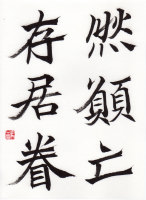 然願亡
存居眷